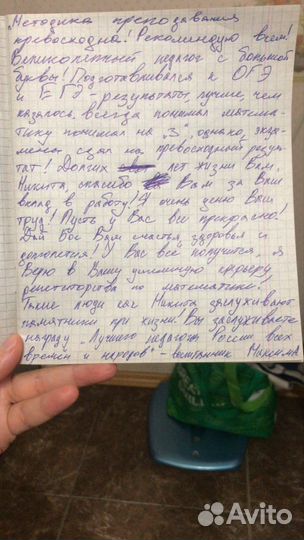 Методика преподавания
превосходна! Рекомендую всем!
Великолепный педагог с большой
буквы! Подготавливался к ОГЭ
и ЕГЭ - результаты лучше, чем
казалось, всегда понимал матема-
тику понимал на „3", однако экза-
мены сдал на превосходный резуль-
тат! Долгих лет жизни Вам,
Никита, спасибо Вам за Ваш
вклад в работу! Я очень ценю Ваш
труд! Пусть у Вас все прекрасно!
Дай Бог Вам счастья, здоровья и
терпения! У Вас всё получится, я
верю в Вашу успешную карьеру
репетиторства по математике.
Такие люди как Никита заслуживают
памятники при жизни! Вы заслуживаете
награду „Лучшего педагога России всех
времен и народов" - воспитанник Максим
Avito